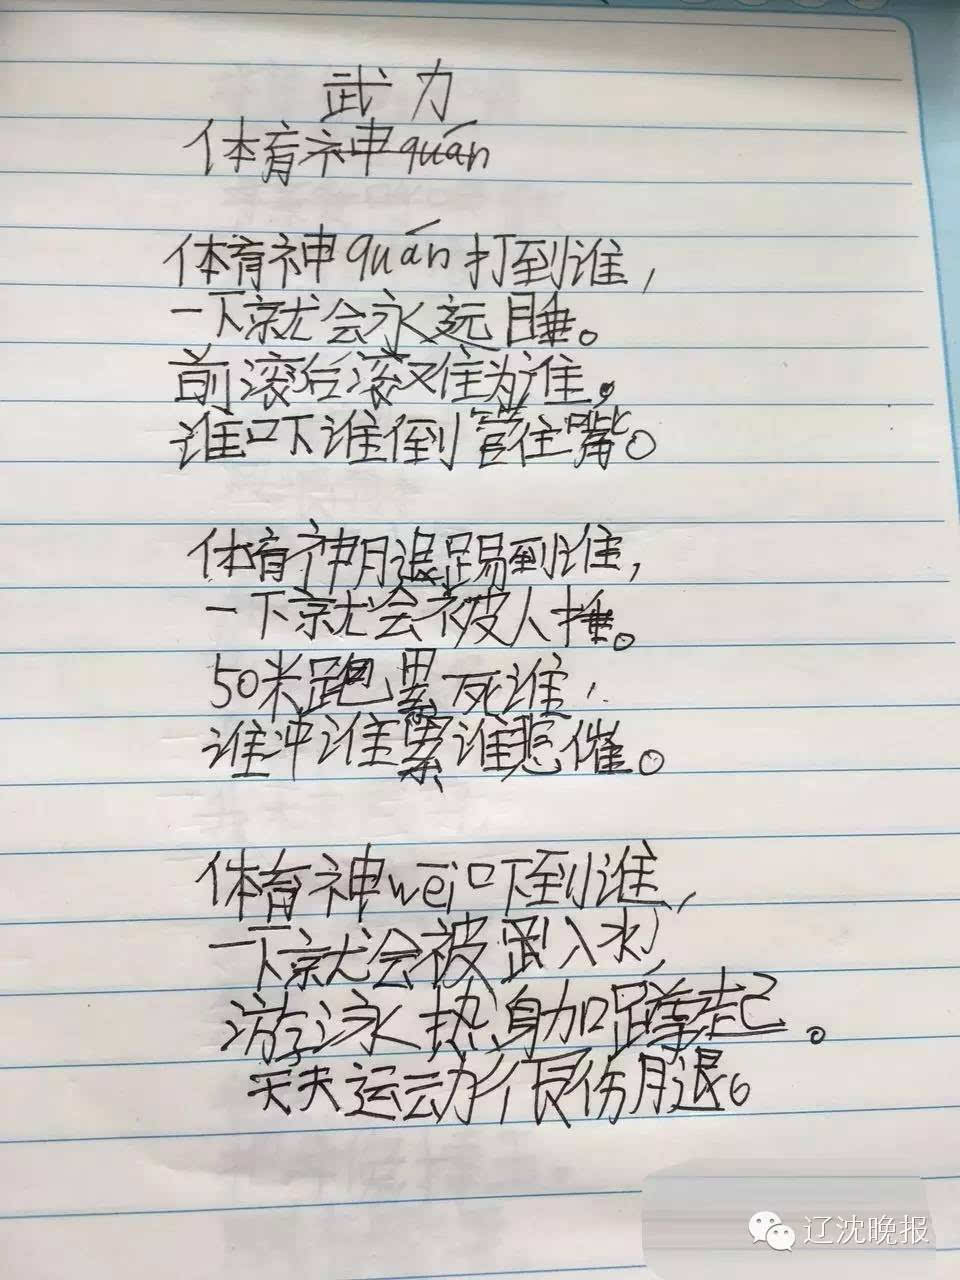 武力
体育神quán
体育神quán打到谁，
一下就会永远睡。
前滚后滚又难为谁，
谁吓谁倒管住嘴。
体育神腿踢到谁，
一下就会被人捶。
50米跑累死谁，
谁冲谁累谁悲催。
体育神wēi吓到谁，
一下就会被踢入水，
游泳热身加蹲起。
天天运动很伤腿。
辽沈晚报